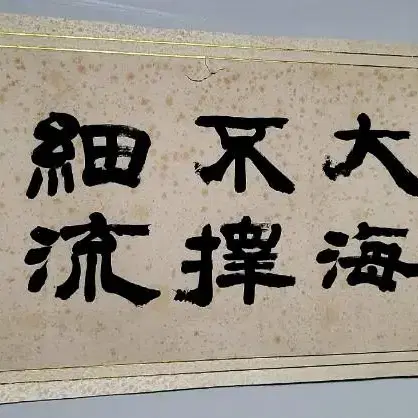 大海
不擇
細流